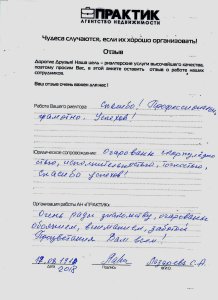 ПРАКТИК
АГЕНТСТВО НЕДВИЖИМОСТИ
Чудеса случаются, если их хорошо организовать!
Отзыв
Дорогие Друзья! Наша цель - риэлтерские услуги высочайшего качества,
поэтому просим Вас, в этой анкете оставить отзыв о работе наших
сотрудников.
Ваш отзыв очень важен для нас!
Работа Вашего риелтора: Спасибо! Профессионально,
грамотно. Успехов!
Юридическое сопровождение: Очарованы
исполнительностью, точностью,
Спасибо успехов!
Организация работы АН «ПРАКТИК»:
Очень рады знакомству, очарованы
обаянием, вниманием, заботой
Процветания Вам всем!
2018
ДАТА ПОДПИСЬ ФИО